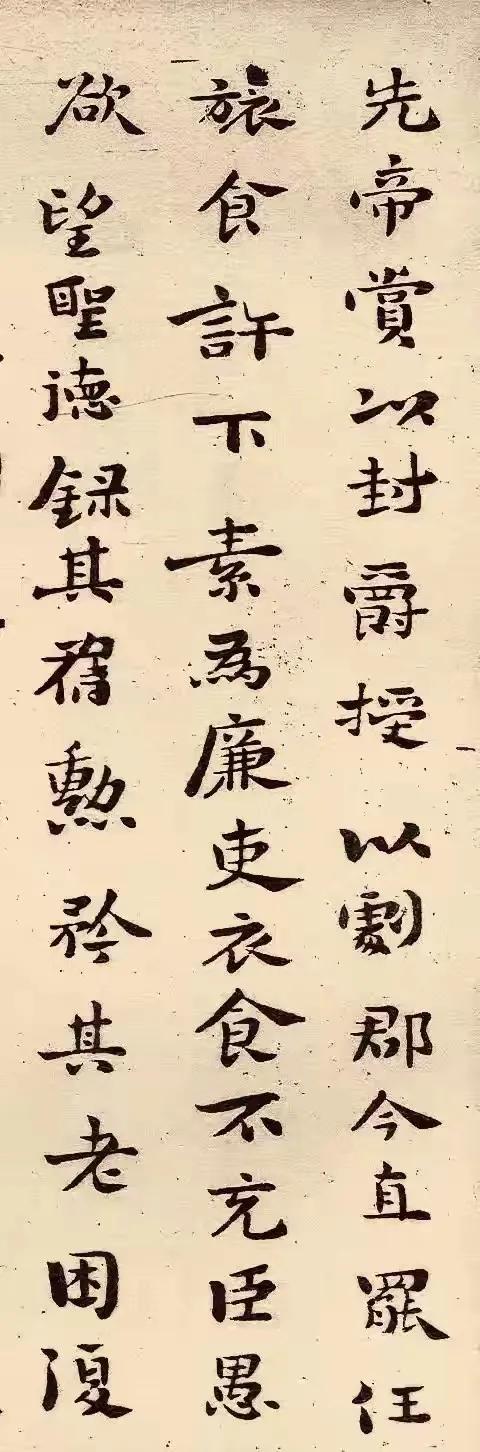 先帝賞以封爵授以劇郡今直罷任
旅食許下素為廉吏衣食不充臣愚
欲望聖德錄其舊勳矜其老困復